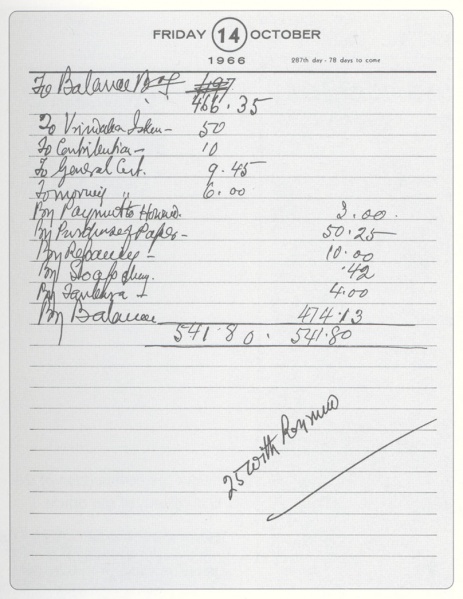 FRIDAY 14 OCTOBER
1966 287th day - 78 days to come
To Balance B/f 497
466.35
To Vrindaban - 50
To Contribution - 10
To General Cont. 9.45
To morning " 6.00
By Payment to Howard. 3.00.
By Purchase of Paper - 50.25
By Repairing - 10.00
By Soap .42
By - 4.00
By Balance 474.13
541.80. 541.80
25 with Roymuo